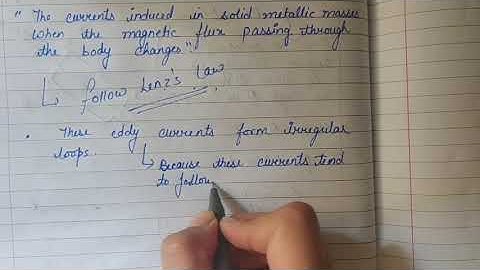 " The currents induced in solid metallic masses
when the magnetic flux passing through
the body changes"
follow Lenz's Law
• These eddy currents form irregular
loops.
Because these currents tend
to follow